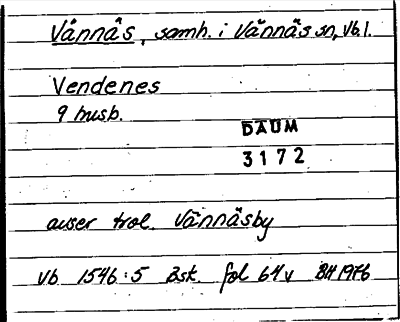 Vännäs, samh. i Vännäs sn, Vb. l.
Vendenes
9 husb.
DAUM
3172
avser trol. Vännäsby
Vb 1546:5 Åsk. fol 64v BH 1976